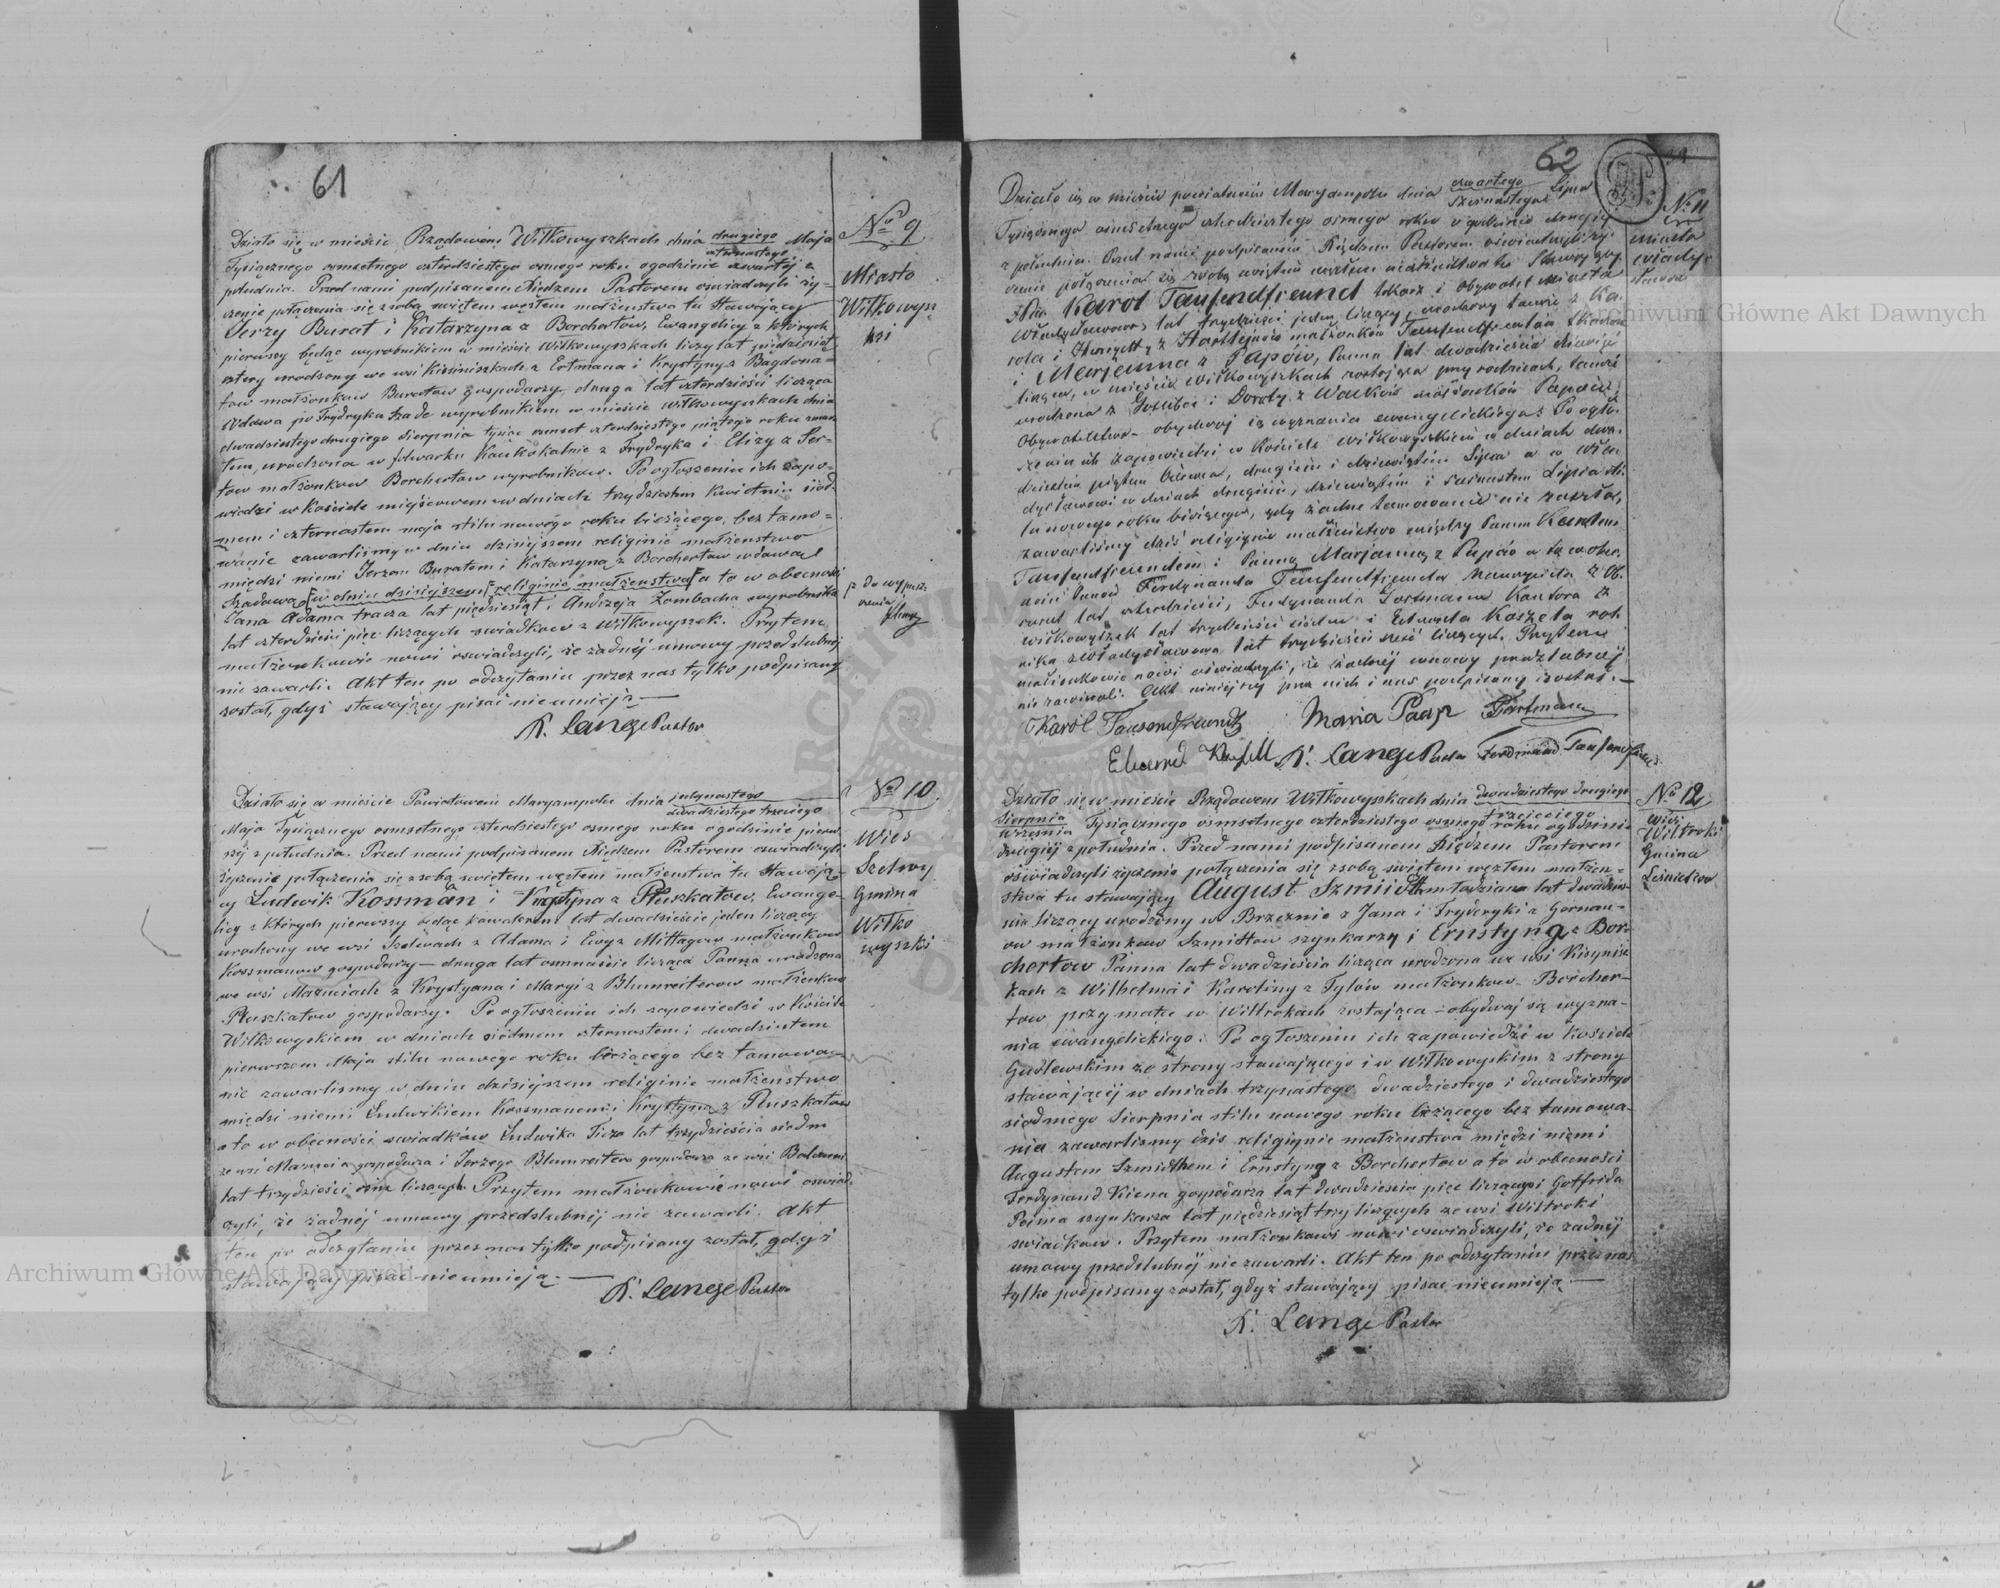 61
Nro 9
Miasto
Wiłkowysz
ki
Działo się w mieście Rządowem Wiłkowyszkach dnia drugiego Maja
czternastego
Tysiącznego osmsetnego czterdziestego osmego roku o godzinie czwartéj z
południa. Przed nami podpisanem Xiędzem Pastorem oswiadczyli ży-
czenie połączenia się z sobą swiętem węzłem małżenstwa tu stawający
Jerzy Burat i Katarzyna z Borchertow, Ewangelicy z których
pierwszy będąc wyrobnikiem w mieście Wiłkowyszkach liczy lat pięćdziesiąt
cztery urodzony we wsi z Ertmana i Krystyny z Bagdona-
tow małżonkow Buratow gospodarzy, druga lat czterdzieści licząca
wdowa po Frydryku Szade wyrobnikiem w mieście Wiłkowyszkach dnia
dwudziestego drugiego Sierpnia tysiąc osmset czterdziestego piątego roku zmar
łem, urodzona w folwarku z Frydryka i Elizy z Ser-
tow małżonkow Borchertow wyrobnikow. Po ogłoszeniu ich zapo-
wiedzi w Kościele miejscowem w dniach trzydziestem Kwietnia siód-
mem i czternastem maja stilu nowego roku bieżącego, bez tamo-
wanie zawarlismy w dniu dzisiejszem religinie małżenstwo
między niemi Jerzem Buratem i Katarzyną z Borchertow wdową
Szadową [w dniu dzisiejszem religinie małżenstwo] a to w obecności
Jana Adama tracza lat pięćdziesiąt i Andrzeja Zombacha wyrobnika
lat czterdzieści pięć liczących swiadkow z Wiłkowyszek. Przytem
małżonkowie nowi oswiadczyli, że żadnéj umowy przedslubnéj
nie zawarli. Akt ten po odczytaniu przez nas tylko podpisany
został, gdyż stawający pisać nieumieją —
X. Lange Pastor
Nro 10
Wies
Szelwy
Gmina
Wiłko
wyszki
Działo się w mieście Powiatowem Maryampolu dnia jedynastego
dwudziestego trzeciego
Maja Tysiącznego osmsetnego czterdziestego osmego roku o godzinie pierw
széj z południa. Przed nami podpisanem Xiędzem Pastorem oswiadczyli
życzenie połączenia się z sobą swietem węzłem małżenstwa tu stawają-
cy Ludwik Kossman i Krystyna z Pluszkatow, Ewange-
licy z których pierwszy będąc kawalerem lat dwadzieście jeden liczący
urodzony we wsi Szelwach z Adama i Ewy z Mittagow małżonkow
Kossmanow gospodarzy — druga lat osmnaście licząca Panna urodzona
we wsi Mazuciach z Krystyana i Maryi z Blumreiterow małżonkow
Pluszkatow gospodarzy. Po ogłoszeniu ich zapowiedzi w Kościele
Wiłkowyskiem w dniach siódmem czternastem i dwudziestem
pierwszem Maja stilu nowego roku bieżącego bez tamowa-
nie zawarlismy w dniu dzisiejszem religinie małżenstwo
między niemi Ludwikiem Kossmanem i Krystyną z Pluszkatow
a to w obecności swiadków Ludwika lat trzydzieście siedm
ze wsi gospodarza i Jerzego Blumreitera gospodarza ze wsi
lat trzydzieści osm liczących. Przytem małżonkowie nowi oswiad-
czyli, że żadnéj umowy przedslubnéj nie zawarli. Akt
ten po odczytaniu przez nas tylko podpisany został, gdyż
stawający pisać nieumieją. —
X. Lange Pastor
62
No 11
miasto
władys
ławow
Działo się w mieście powiatowem Maryampolu dnia czwartego Lipca
szesnastego
Tysiącznego osmsetnego czterdziestego osmego roku o godzinie drugiéj
z południa. Przed nami podpisanem Xiędzem Pastorem oświadczyli ży-
czenie połączenia się z sobą świętem węzłem małżeństwa tu stawający
Karol Tausendfreund i Obywatel miasta
Władysławowa, lat trzydzieści jeden liczący, urodzony tamże z Ka-
rola i Henryetty z małżonków Tausendfreundów
i Maryanna z Papów, Panna lat dwadzieścia
licząca, w mieście Wiłkowyszkach zostająca przy rodzicach, tamże
urodzona z Gotliba i Doroty z małżonków Papów
Obywatelstwa — obydwoj są wyznania ewangelickiego. Po ogło-
szeniu ich zapowiedzi w Kościele Wiłkowyskiem w dniach dwu-
dziestem piątem Czerwca, drugiem i dziewiątem Lipca a w Wła-
dysławowie w dniach drugiem, dziewiątem i szesnastem Lipca sti-
lu nowego roku bieżącego, gdy żadne tamowanie nie zaszło,
zawarliśmy dziś religijnie małżeństwo między Panem Karolem
Tausendfreundem i Panną Maryanną z Papów a to w obec-
ności Panow Ferdynanda Tausendfreunda
lat czterdzieści, Ferdynanda Gortmana Kantora z
Wiłkowyszek lat trzydzieści siedm i Edwarda
z Władysławowa lat trzydzieści sześć liczących. Przytem
małżonkowie nowi oświadczyli, że żadnéj umowy przedslubnéj
nie zawierali. Akt niniejszy przez nich i nas podpisany został. —
Karol Tausendfreund Maria Paap Gortmann
Eduard X. Lange Pastor Ferdinand Tausendfreund
No 12
Wieś
Wiltroki
Gmina
Leśnictwo
Działo się w mieście Rządowem Wiłkowyszkach dnia dwudziestego drugiego
trzeciego
Sierpnia
Września Tysiącznego osmsetnego czterdziestego osmego roku o godzinie
drugiéj z południa. Przed nami podpisanem Xiędzem Pastorem
oświadczyli życzenie połączenia się z sobą swiętem węzłem małżen-
stwa tu stawający August Szmidth młodzian lat dwadzieś-
cia liczący urodzony w Brzeznie z Jana i Fryderyki z Gorman-
ow małżonkow Szmittow szynkarzy i Ernstyną z Bor-
chertow Panna lat dwadzieścia licząca urodzona we wsi Kisynisz-
kach z Wilhelma i Karoliny z Tylow małżonkow Borcher-
tow przy matce w Wiltrokach zostająca — obydwaj są wyzna-
nia ewangelickiego. Po ogłoszeniu ich zapowiedzi w kościele
Gudlewskim ze strony stawającego i w Wiłkowyskim z strony
stawającéj w dniach trzynastego dwudziestego i dwudziestego
siodmego Sierpnia stilu nowego roku bieżącego bez tamowa-
nia zawarlismy dzis religijnie małżenstwo między niemi
Augustem Szmidthem i Ernstyną z Borchertow a to w obecności
Ferdynand Kiena gospodarza lat dwadzieścia pięc liczącego i Gotfrida
Peima szynkarza lat pięćdziesiąt trzy liczących ze wsi Wiltroki
swiadkow. Przytem małżonkowi nowi oswiadczyli, że żadnéj
umowy przedslubnéj nie zawarli. Akt ten po odczytaniu przez nas
tylko podpisany został, gdyż stawający pisac nieumieją. —
X. Lange Pastor
Archiwum Główne Akt Dawnych
Archiwum Główne Akt Dawnych